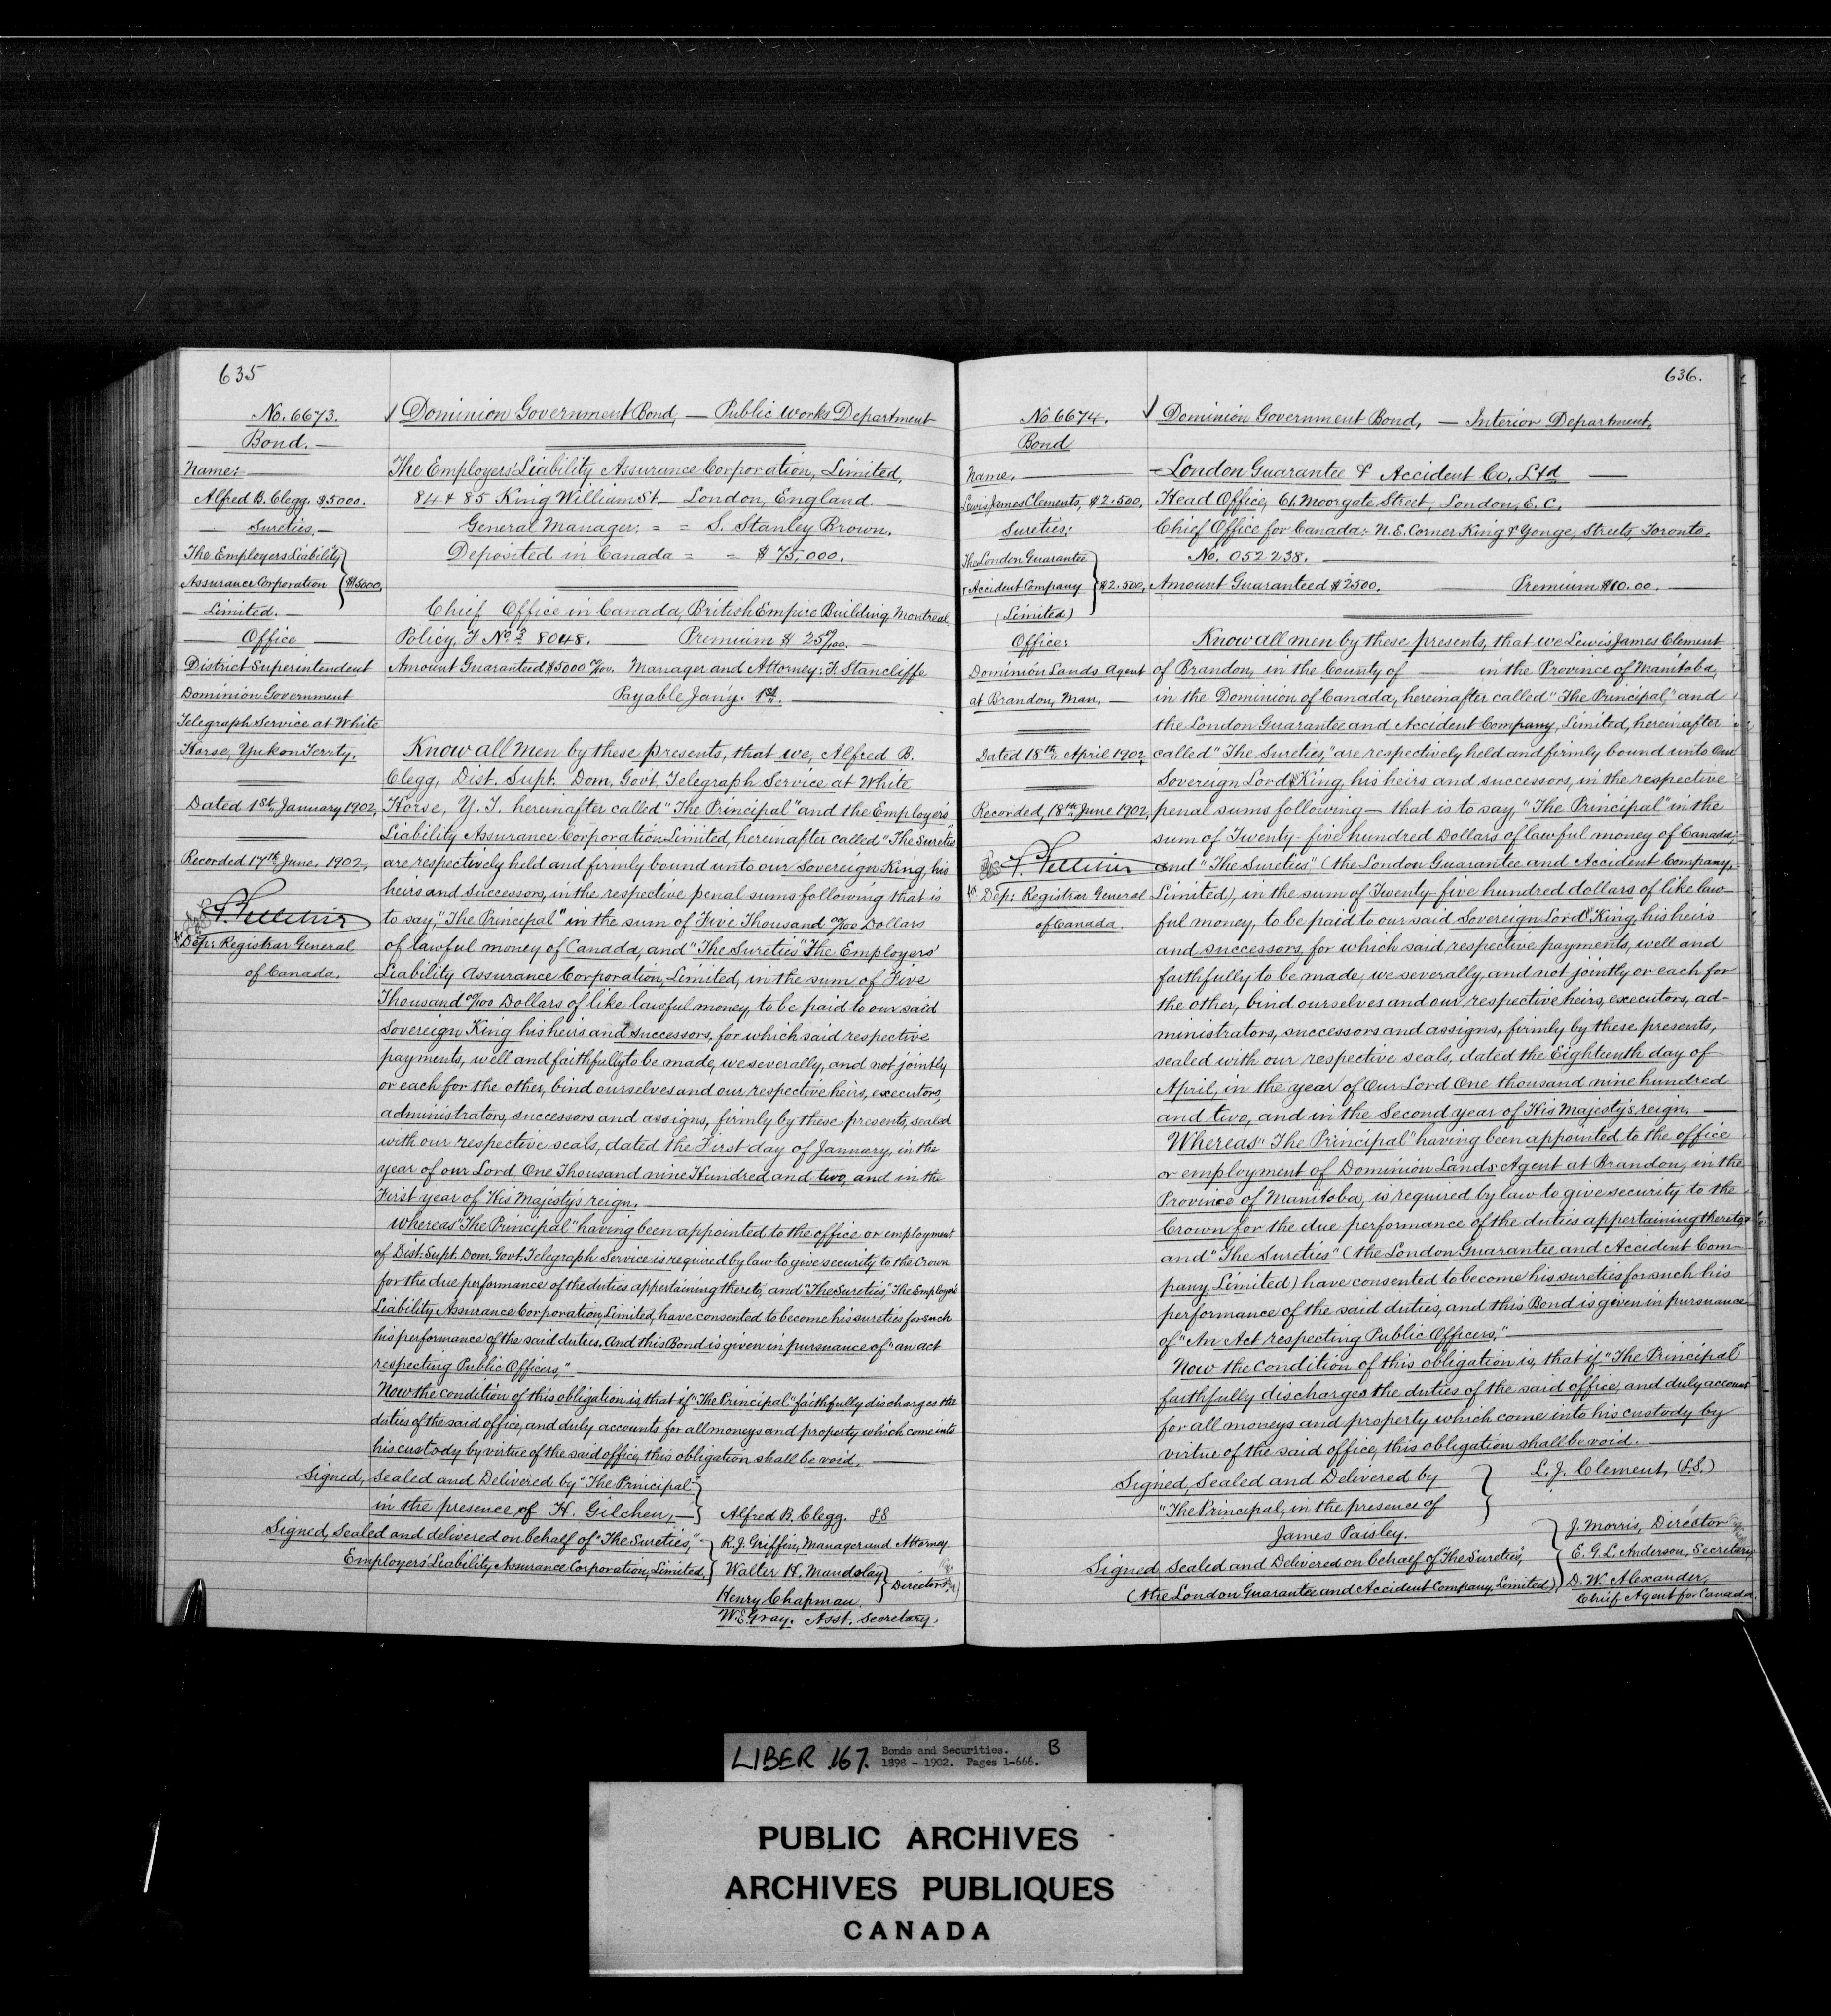 635
No. 6673.
Bond.
Name:
Alfred B. Clegg. $5000.
Sureties,
The Employers Liability
Assurance Corporation } $5000.
Limited.
Office
District Superintendent
Dominion Government
Telegraph Service at White
Horse, Yukon Terrty.
Dated 1st January 1902,
Recorded 17th June, 1902,
Dep: Registrar General
of Canada.
√ Dominion Government Bond, — Public Works Department
The Employers' Liability Assurance Corporation, Limited,
84 & 85 King William St. — London, England. —
General Manager: = = S. Stanley Brown.
Deposited in Canada = = $75,000.
Chief Office in Canada, British Empire Building Montreal
Policy, F No. 8048. Premium $ 25 0/100. —
Amount Guaranteed $5000 00/100. Manager and Attorney: F. Stancliffe
Payable Jan'y. 1st.
Know all Men by these presents, that we, Alfred B.
Clegg, Dist. Supt. Dom. Govt. Telegraph Service at White
Horse, Y. T. hereinafter called "The Principal" and the Employers'
Liability Assurance Corporation Limited, hereinafter called "The Sureties"
are respectively held and firmly bound unto our Sovereign King, his
heirs and successors, in the respective penal sums following that is
to say, "The Principal" in the sum of Five Thousand 00/100 Dollars
of lawful money of Canada, and "The Sureties" The Employers'
Liability Assurance Corporation, Limited, in the sum of Five
Thousand 00/100 Dollars of like lawful money, to be paid to our said
Sovereign King his heirs and successors, for which said respective
payments, well and faithfully to be made, we severally, and not jointly
or each for the other, bind ourselves and our respective heirs, executors,
administrators, successors and assigns, firmly by these presents, sealed
with our respective seals, dated the First day of January, in the
year of our Lord One Thousand nine Hundred and two, and in the
First year of His Majesty's reign.
Whereas "The Principal" having been appointed to the office or employment
of Dist. Supt. Dom. Govt. Telegraph Service is required by law to give security to the Crown
for the due performance of the duties appertaining thereto, and "The Sureties," The Employers'
Liability Assurance Corporation, Limited, have consented to become his sureties for such
his performance of the said duties. And this Bond is given in pursuance of "an act
respecting Public Officers,"
Now the condition of this obligation is, that if "The Principal" faithfully discharges the
duties of the said office, and duly accounts for all moneys and property which come into
his custody by virtue of the said office, this obligation shall be void. —
Signed, Sealed and Delivered by "The Prinicipal"
in the presence of H. Gilchen, — } Alfred B. Clegg. LS
Signed, Sealed and delivered on behalf of "The Sureties," R. J. Griffin, Manager and Attorney
Employers' Liability Assurance Corporation, Limited, Walter H. Mandslay } Directors
Henry Chapman.
W. E. Gray. Asst. Secretary.
636.
No. 6674.
Bond
Name,
Lewis James Clements, $2.500,
Sureties:
The London Guarantee
& Accident Company } $2.500,
(Limited)
Office:
Dominion Lands Agent
at Brandon, Man. —
Dated 18th April 1902,
Recorded, 18th June 1902,
Dep: Registrar General
of Canada.
√ Dominion Government Bond, — Interior Department,
— London Guarantee & Accident Co. Ltd. —
Head Office, 61, Moorgate Street, London, E. C.
Chief Office for Canada: N. E. Corner King & Yonge, Streets, Toronto.
No. 052238.
Amount Guaranteed $2500. Premium $10.00. —
Know all men by these presents, that we Lewis James Clement
of Brandon, in the County of — in the Province of Manitoba,
in the Dominion of Canada, hereinafter called "The Principal," and
the London Guarantee and Accident Company, Limited, hereinafter
called "The Sureties," are respectively held and firmly bound unto Our
Sovereign Lord King, his heirs and successors, in the respective
penal sums following — that is to say, "The Principal" in the
sum of Twenty-five hundred Dollars of lawful money of Canada,
and "The Sureties" (the London Guarantee and Accident Company,
Limited), in the sum of Twenty-five hundred dollars of like law-
ful money, to be paid to our said Sovereign Lord King, his heirs
and successors, for which said respective payments, well and
faithfully to be made, we severally, and not jointly or each for
the other, bind ourselves and our respective heirs, executors, ad-
ministrators, successors and assigns, firmly by these presents,
sealed with our respective seals, dated the Eighteenth day of
April, in the year of Our Lord One thousand nine hundred
and two, and in the Second year of His Majesty's reign. —
Whereas "The Principal" having been appointed to the office
or employment of Dominion Lands Agent at Brandon, in the
Province of Manitoba, is required by law to give security to the
Crown for the due performance of the duties appertaining thereto,
and "The Sureties" (the London Guarantee and Accident Com-
pany, Limited) have consented to become his sureties for such his
performance of the said duties, and this Bond is given in pursuance
of "An Act respecting Public Officers,"
Now the condition of this obligation is, that if "The Principal"
faithfully discharges the duties of the said office, and duly account
for all moneys and property which come into his custody by
virtue of the said office, this obligation shall be void. —
Signed, Sealed and Delivered by } L. J. Clement, (L.S.)
"The Principal, in the presence of
James Paisley. J. Morris, Director
Signed Sealed and Delivered on behalf of "The Sureties", E. G. L. Anderson, Secretary
(the London Guarantee and Accident Company, Limited) D. W. Alexander,
Chief Agent for Canada.
LIBER 167. Bonds and Securities. B
1898 - 1902. Pages 1-666.
PUBLIC ARCHIVES
ARCHIVES PUBLIQUES
CANADA